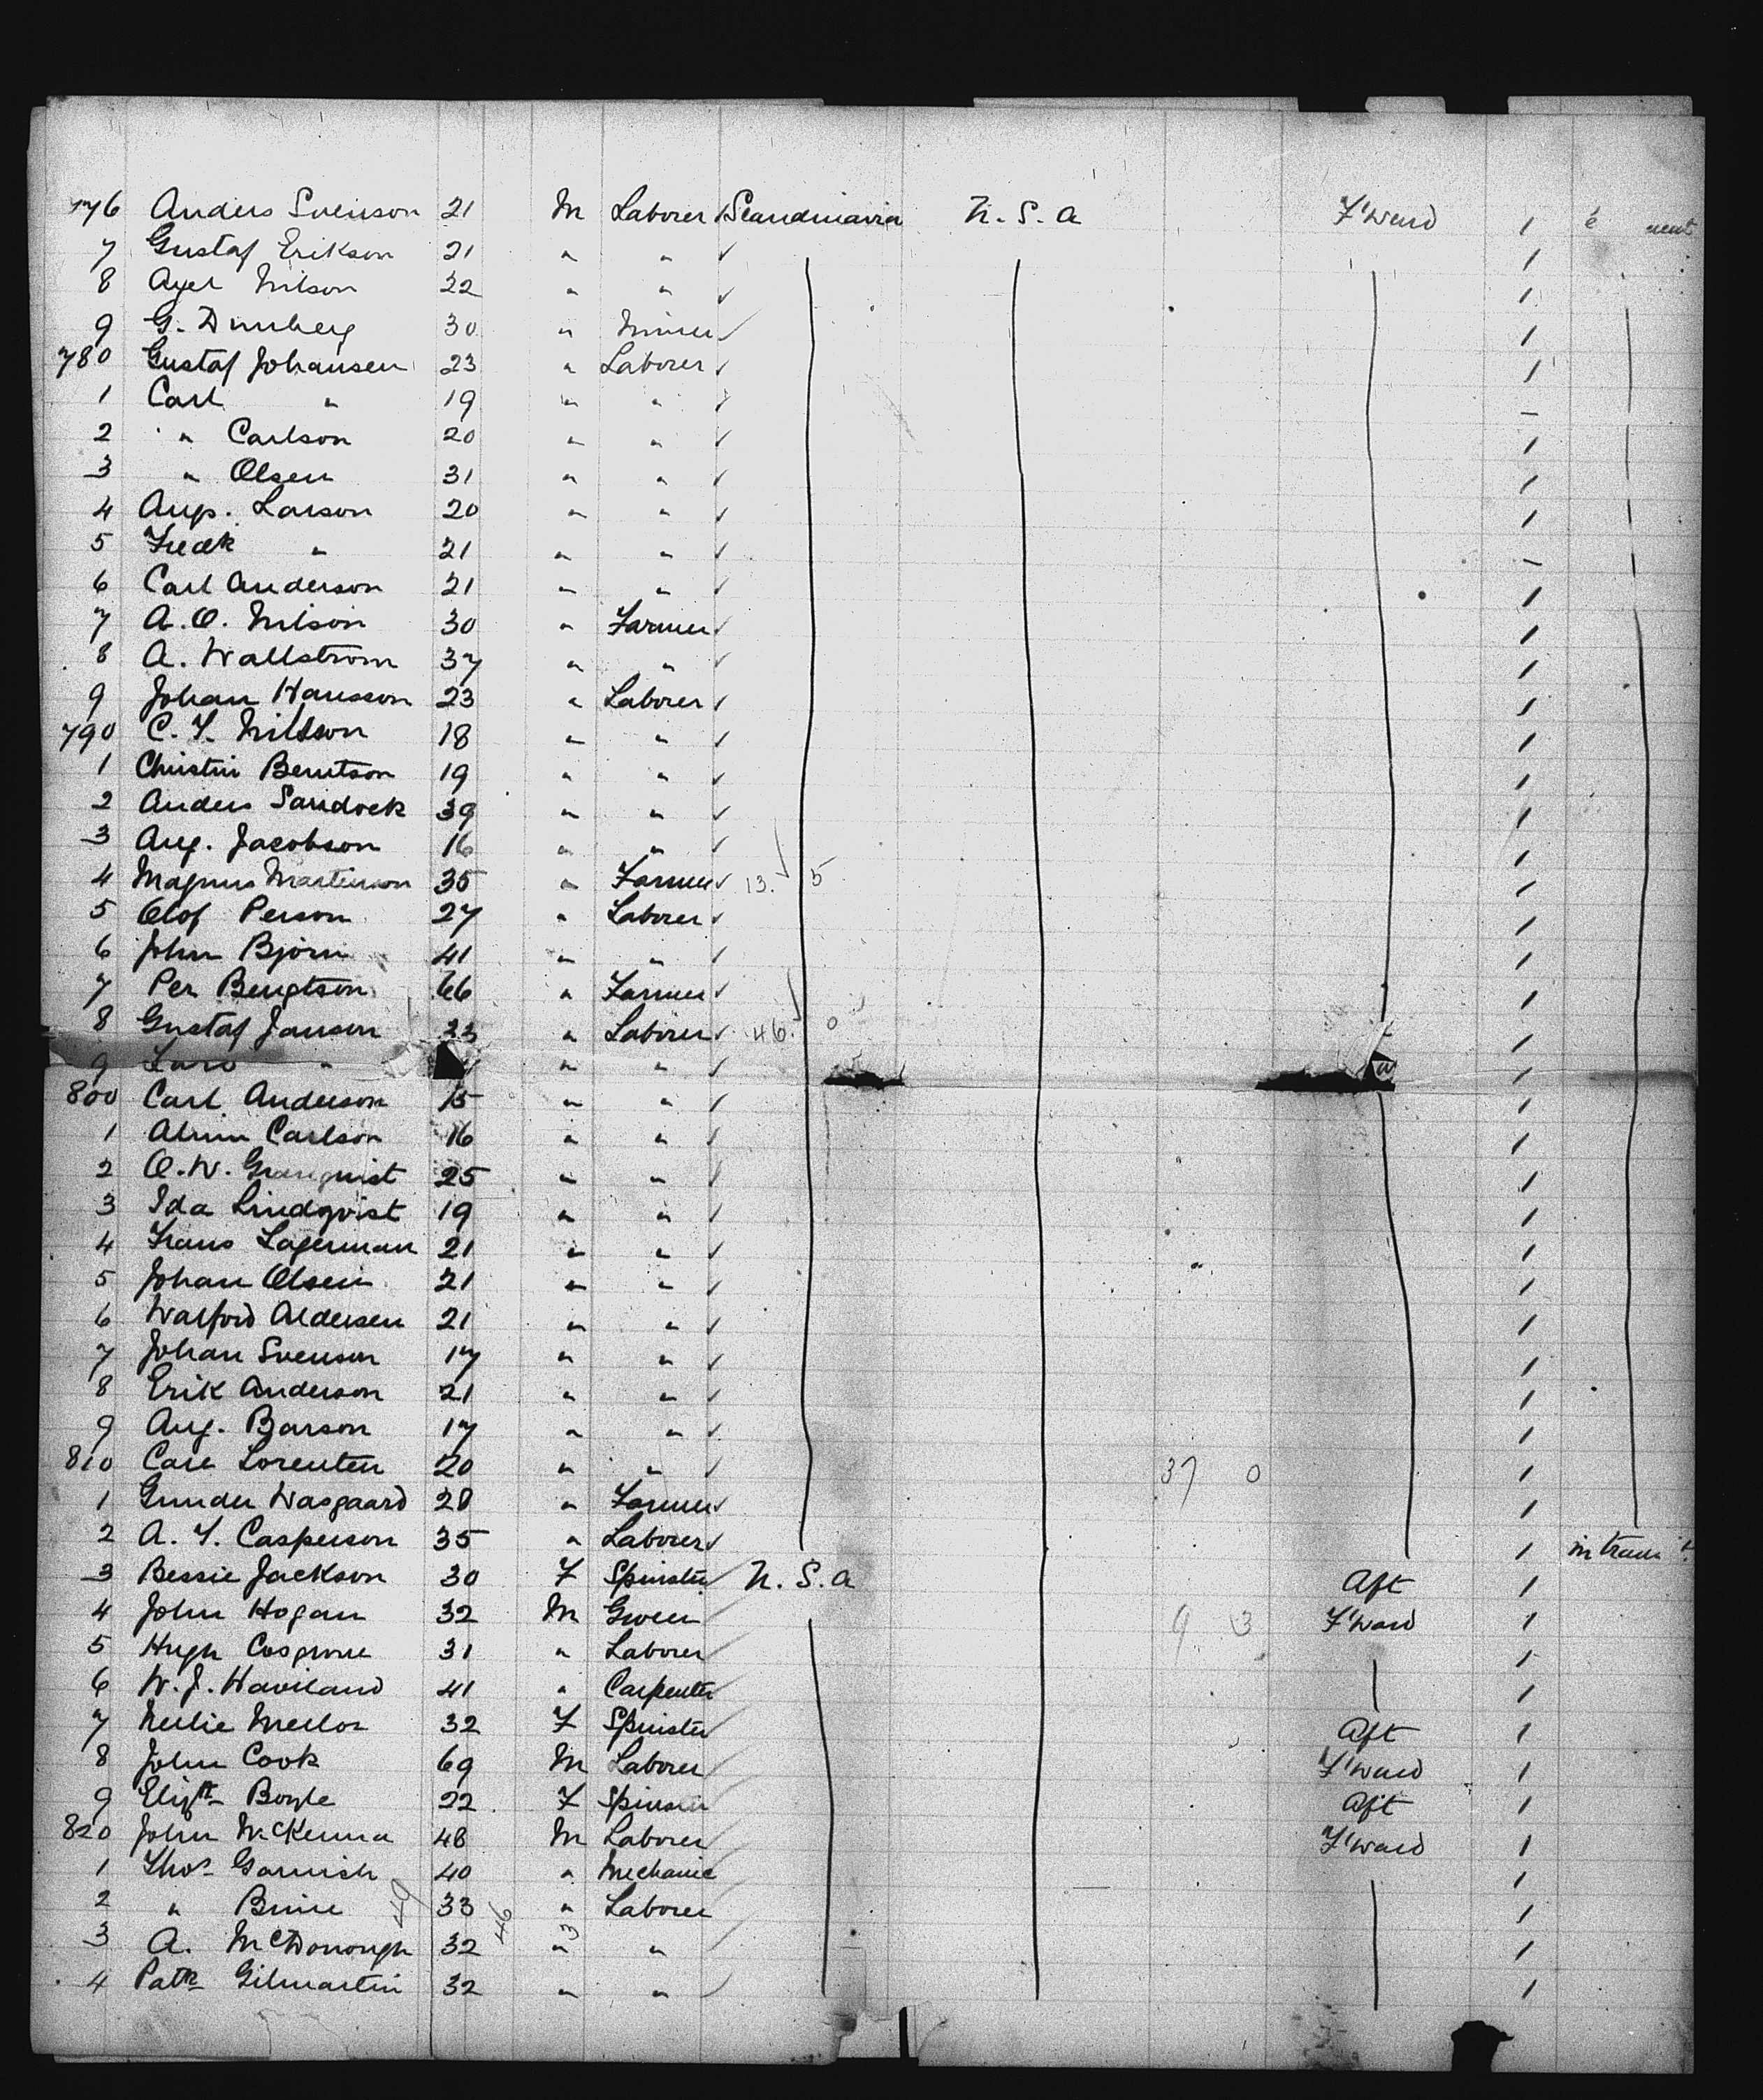 776 Anders Svenson 21 M Laborer Scandinavia U.S.A F'ward 1
7 Gustaf Erikson 21 " " 1
8 Axel Nilson 22 " " 1
9 G. 30 " Miner 1
780 Gustaf Johansen 23 " Laborer 1
1 Carl " 19 " "
2 " Carlson 20 " " 1
3 " Olsen 31 " " 1
4 Aug. Larson 20 " " 1
5 Fredk " 21 " "
6 Carl Anderson 21 " " 1
7 A. O. Nilson 30 " Farmer 1
8 A. Wallstrom 37 " " 1
9 Johan Hansson 23 " Laborer 1
790 C. F. Nilsson 18 " " 1
1 Christin Berntson 19 " " 1
2 Anders 39 " " 1
3 Aug. Jacobson 16 " " 1
4 Magnus Martinson 35 " Farmer 13. 5 1
5 Olof Person 27 " Laborer 1
6 John Bjorn 41 " " 1
7 Per Bengtson 66 " Farmer 1
8 Gustaf Janson 23 " Laborer 46. 0 1
9 Lars " " " 1
800 Carl Anderson 15 " " 1
1 Carlson 16 " " 1
2 O. W. Granquist 25 " " 1
3 Ida Lindqvist 19 " " 1
4 Frans Lagerman 21 " " 1
5 Johan Olsen 21 " " 1
6 Walford Aldersen 21 " " 1
7 Johan Svenson 17 " " 1
8 Erik Anderson 21 " " 1
9 Aug. Barson 17 " " 1
810 Carl Lorenten 20 " " 37 0 1
1 Gunder Wasgaard 28 " Farmer 1
2 A. F. Casperson 35 " Laborer 1 in transit
3 Bessie Jackson 30 F Spinster U.S.A Aft 1
4 John Hogan 32 M Grocer 9 3 F'ward 1
5 Hugh Cosgrove 31 " Laborer 1
6 W. J. Haviland 41 " Carpenter 1
7 Nellie Mellor 32 F Spinster Aft 1
8 John Cook 69 M Laborer F'ward 1
9 Elizth Boyle 22 F Spinster Aft 1
820 John McKenna 48 M Laborer F'ward 1
1 Thos Garnish 40 " Mechanic 1
2 " 49 33 46 " Laborer 1
3 A. McDonough 32 " 3 " 1
4 Patk Gilmartin 32 " " 1